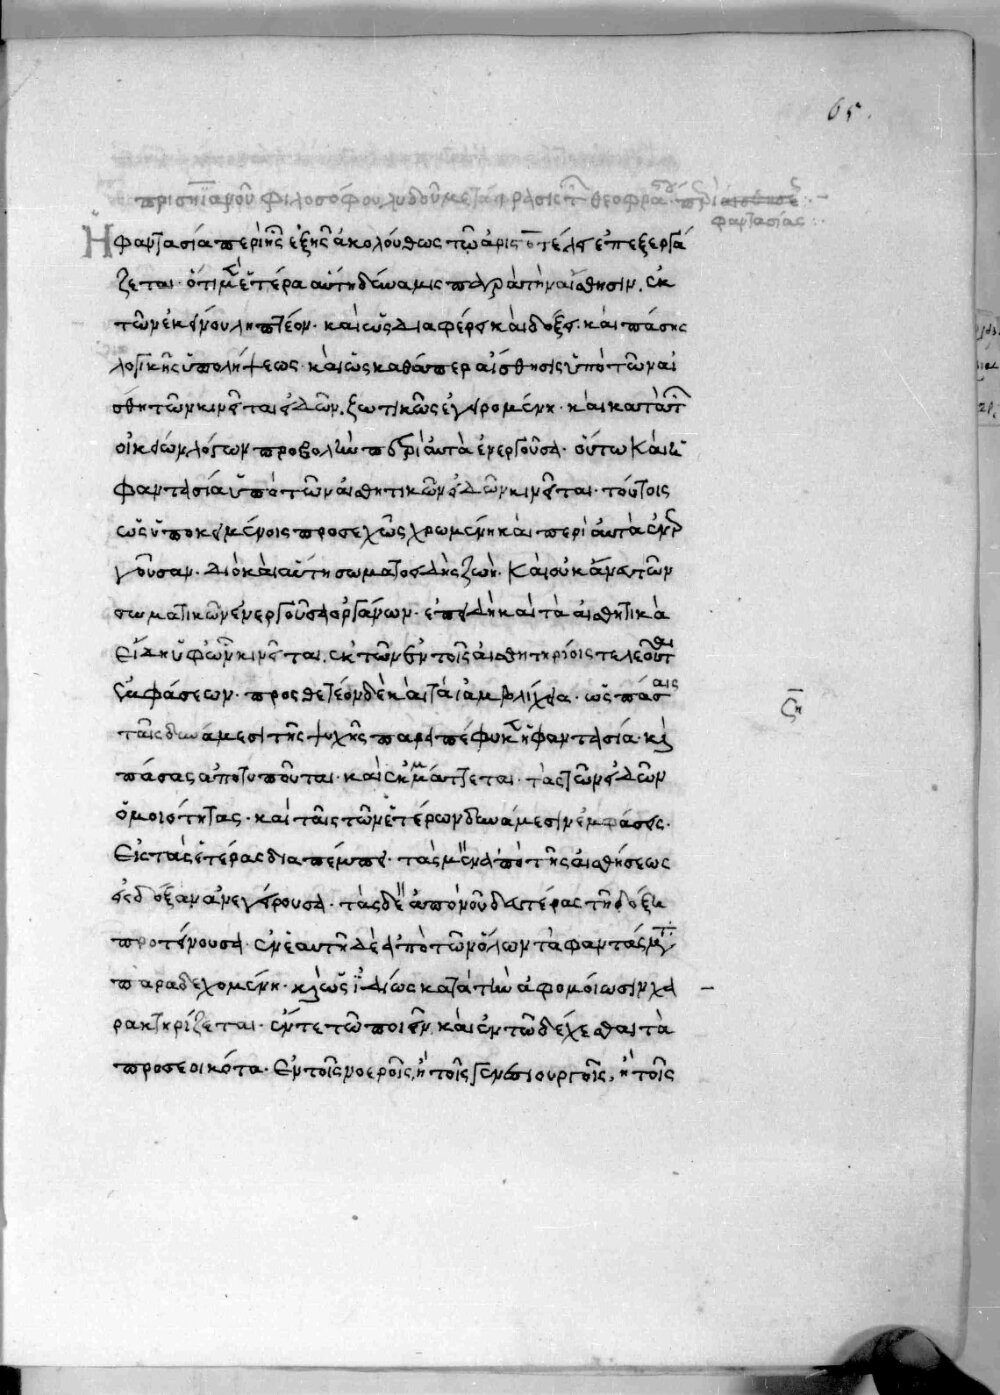 65.
πρισκιανοῦ φιλοσόφου λυδοῦ μετάφρασις τῶν θεοφράστου περὶ αἰσθήσεως
φαντασίας
Ἡ φαντασία περὶ ἧς ἑξῆς ἀκολούθως τῷ ἀριστοτέλει ἐπεξεργά
ζεται· ὅτι μὲν ἑτέρα αὕτη δύναμις παρὰ τὴν αἴσθησιν, ἐκ
τῶν ἐκείνου ληπτέον· καὶ ὡς διαφέρει καὶ δόξης· καὶ πάσης
λογικῆς ὑπολήψεως· καὶ ὡς καθάπερ αἴσθησις ὑπὸ τῶν αἰ
σθητῶν κινεῖται εἰδῶν. ζωτικῶς ἐγειρομένη· καὶ κατὰ τὴν
οἰκείων λόγων προβολὴν περὶ αὐτὰ ἐνεργοῦσα· οὕτω καὶ ἡ
φαντασία ὑπὸ τῶν αἰσθητικῶν εἰδῶν κινεῖται· τούτοις
ὡς ὑποκειμένοις προσεχῶς χρωμένη καὶ περὶ αὐτὰ ἐνερ
γοῦσαν· διὸ καὶ αὕτη σωματοειδὴς ζωή· καὶ οὐκ ἄνευ τῶν
σωματικῶν ἐνεργοῦσα ὀργάνων· ἐπειδὴ καὶ τὰ αἰσθητικὰ
εἴδη ὑφ' ὧν κινεῖται, ἐκ τῶν ἐν τοῖς αἰσθητηρίοις τελεῖσθαι
ἐμφάσεων· προσθετέον δὲ καὶ τὰ ἰαμβλίχεια· ὡς πάσαις
ταῖς δυνάμεσι τῆς ψυχῆς παραπέφυκεν ἡ φαντασία· καὶ
πάσας ἀποτυποῦται· καὶ ἐκμάττεται· τὰς τῶν εἰδῶν
ὁμοιότητας· καὶ ταῖς τῶν ἑτέρων δυνάμεσιν ἐμφάσεις·
εἰς τὰς ἑτέρας διαπέμπει· τὰς μὲν ἀπὸ τῆς αἰσθήσεως
εἰς δόξαν ἀνεγείρουσα· τὰς δὲ ἀπὸ νοῦ δευτέρας τῇ δόξῃ
προτείνουσα· ἐν ἑαυτῇ δὲ ἀπὸ τῶν ὅλων τὰ φαντάσματα
παραδεχομένη· καὶ ὡς ἰδίως κατὰ τὴν ἀφομοίωσιν χα
ρακτηρίζεται· ἔν τε τῷ ποιεῖν, καὶ ἐν τῷ δέχεσθαι τὰ
προσεοικότα· ἐν τοῖς νοεροῖς, ἢ τοῖς γενεσιουργοῖς, ἢ τοῖς